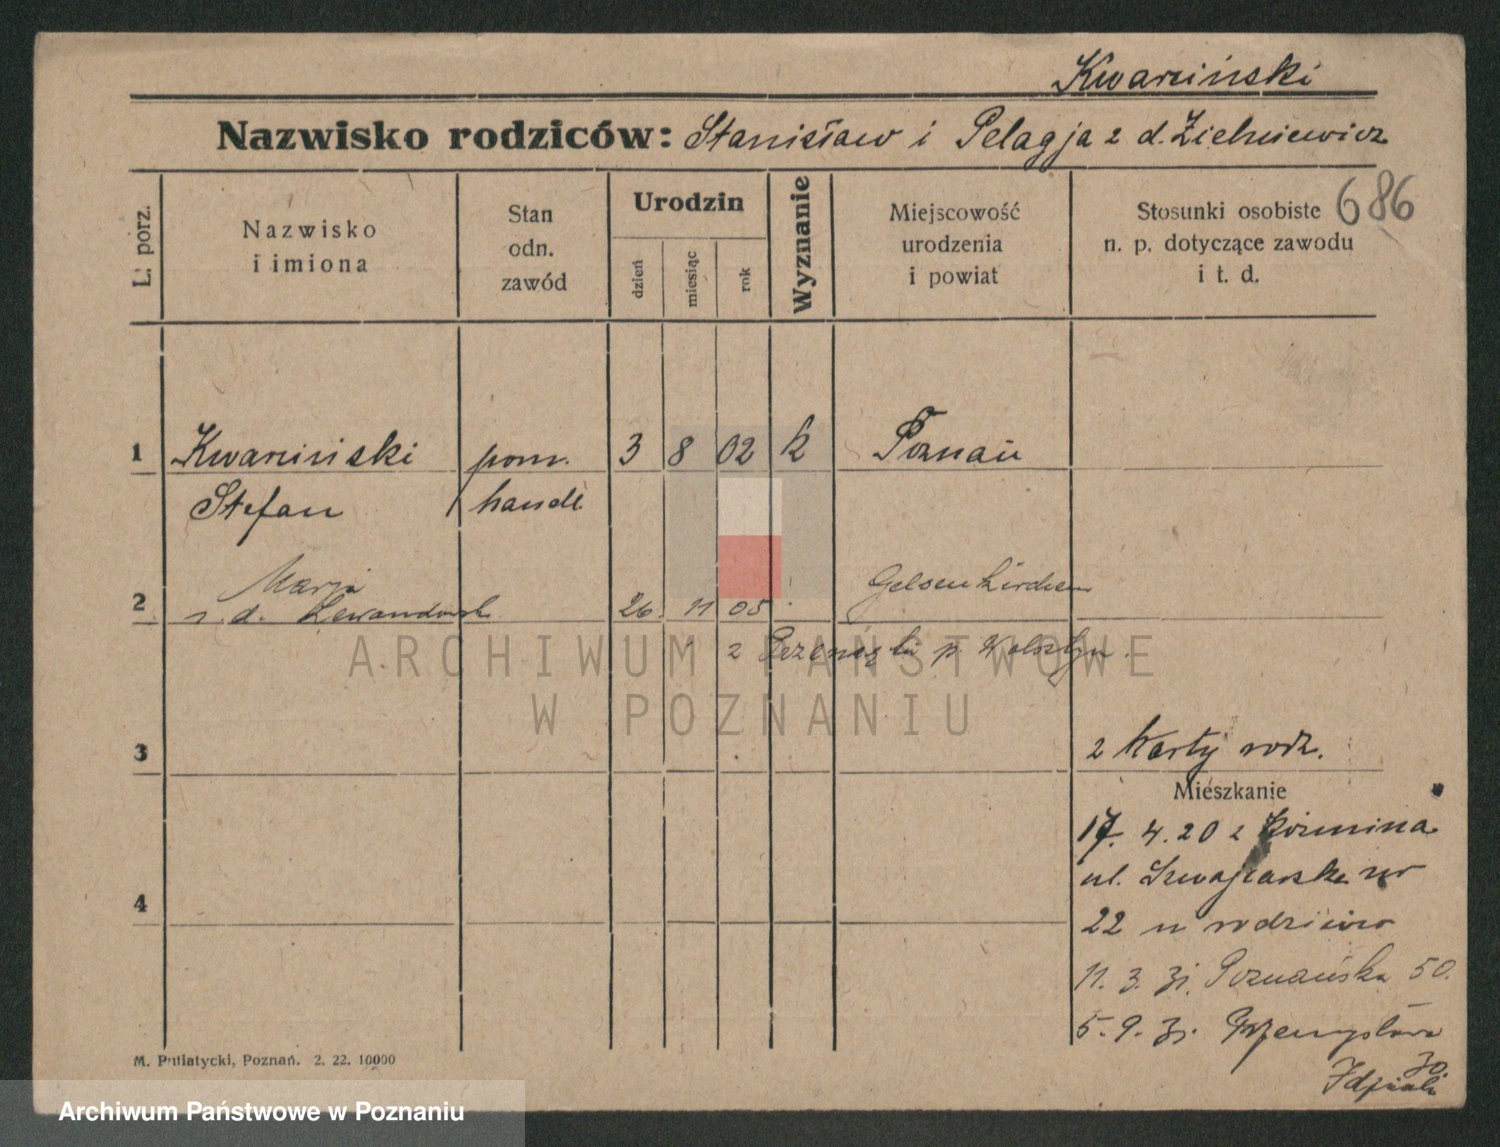 Kwarciński
Nazwisko rodziców: Stanisław i Pelagja z d. Zielniewicz
686
L. porz.
Nazwisko i imiona
Stan odn. zawód
Urodzin
dzień
miesiąc
rok
Wyznanie
Miejscowość urodzenia i powiat
Stosunki osobiste n. p. dotyczące zawodu i t. d.
1 Kwarciński pom. 3 8 02 k Poznań
Stefan handl.
Marja Gelsenkirchen
2 z. d. Lewandowsk 26 11 05
ARCHIWUM PAŃSTWOWE
z p. Wolsztyn.
W POZNANIU
3 2 Karty rodz.
Mieszkanie
17. 4. 20 z Koźmina
ul. Szwajcarska nr
4
22 u rodziców
11. 3. 31. Poznańska 50.
5. 9. 31. Przemysłowa
30.
M. Putiatycki, Poznań. 2. 22. 10000
Archiwum Państwowe w Poznaniu